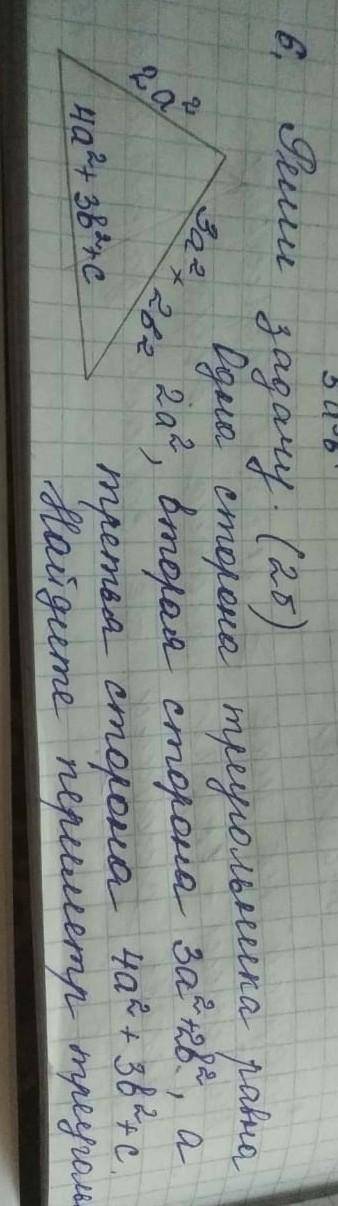 6. Реши задачу. (2б)
Одна сторона треугольника равна
2a², вторая сторона 3a²+2b², а
третья сторона 4a² + 3b²+c.
Найдите периметр треуголь
2a²
3a² × 2b²
4a²+ 3b²+c